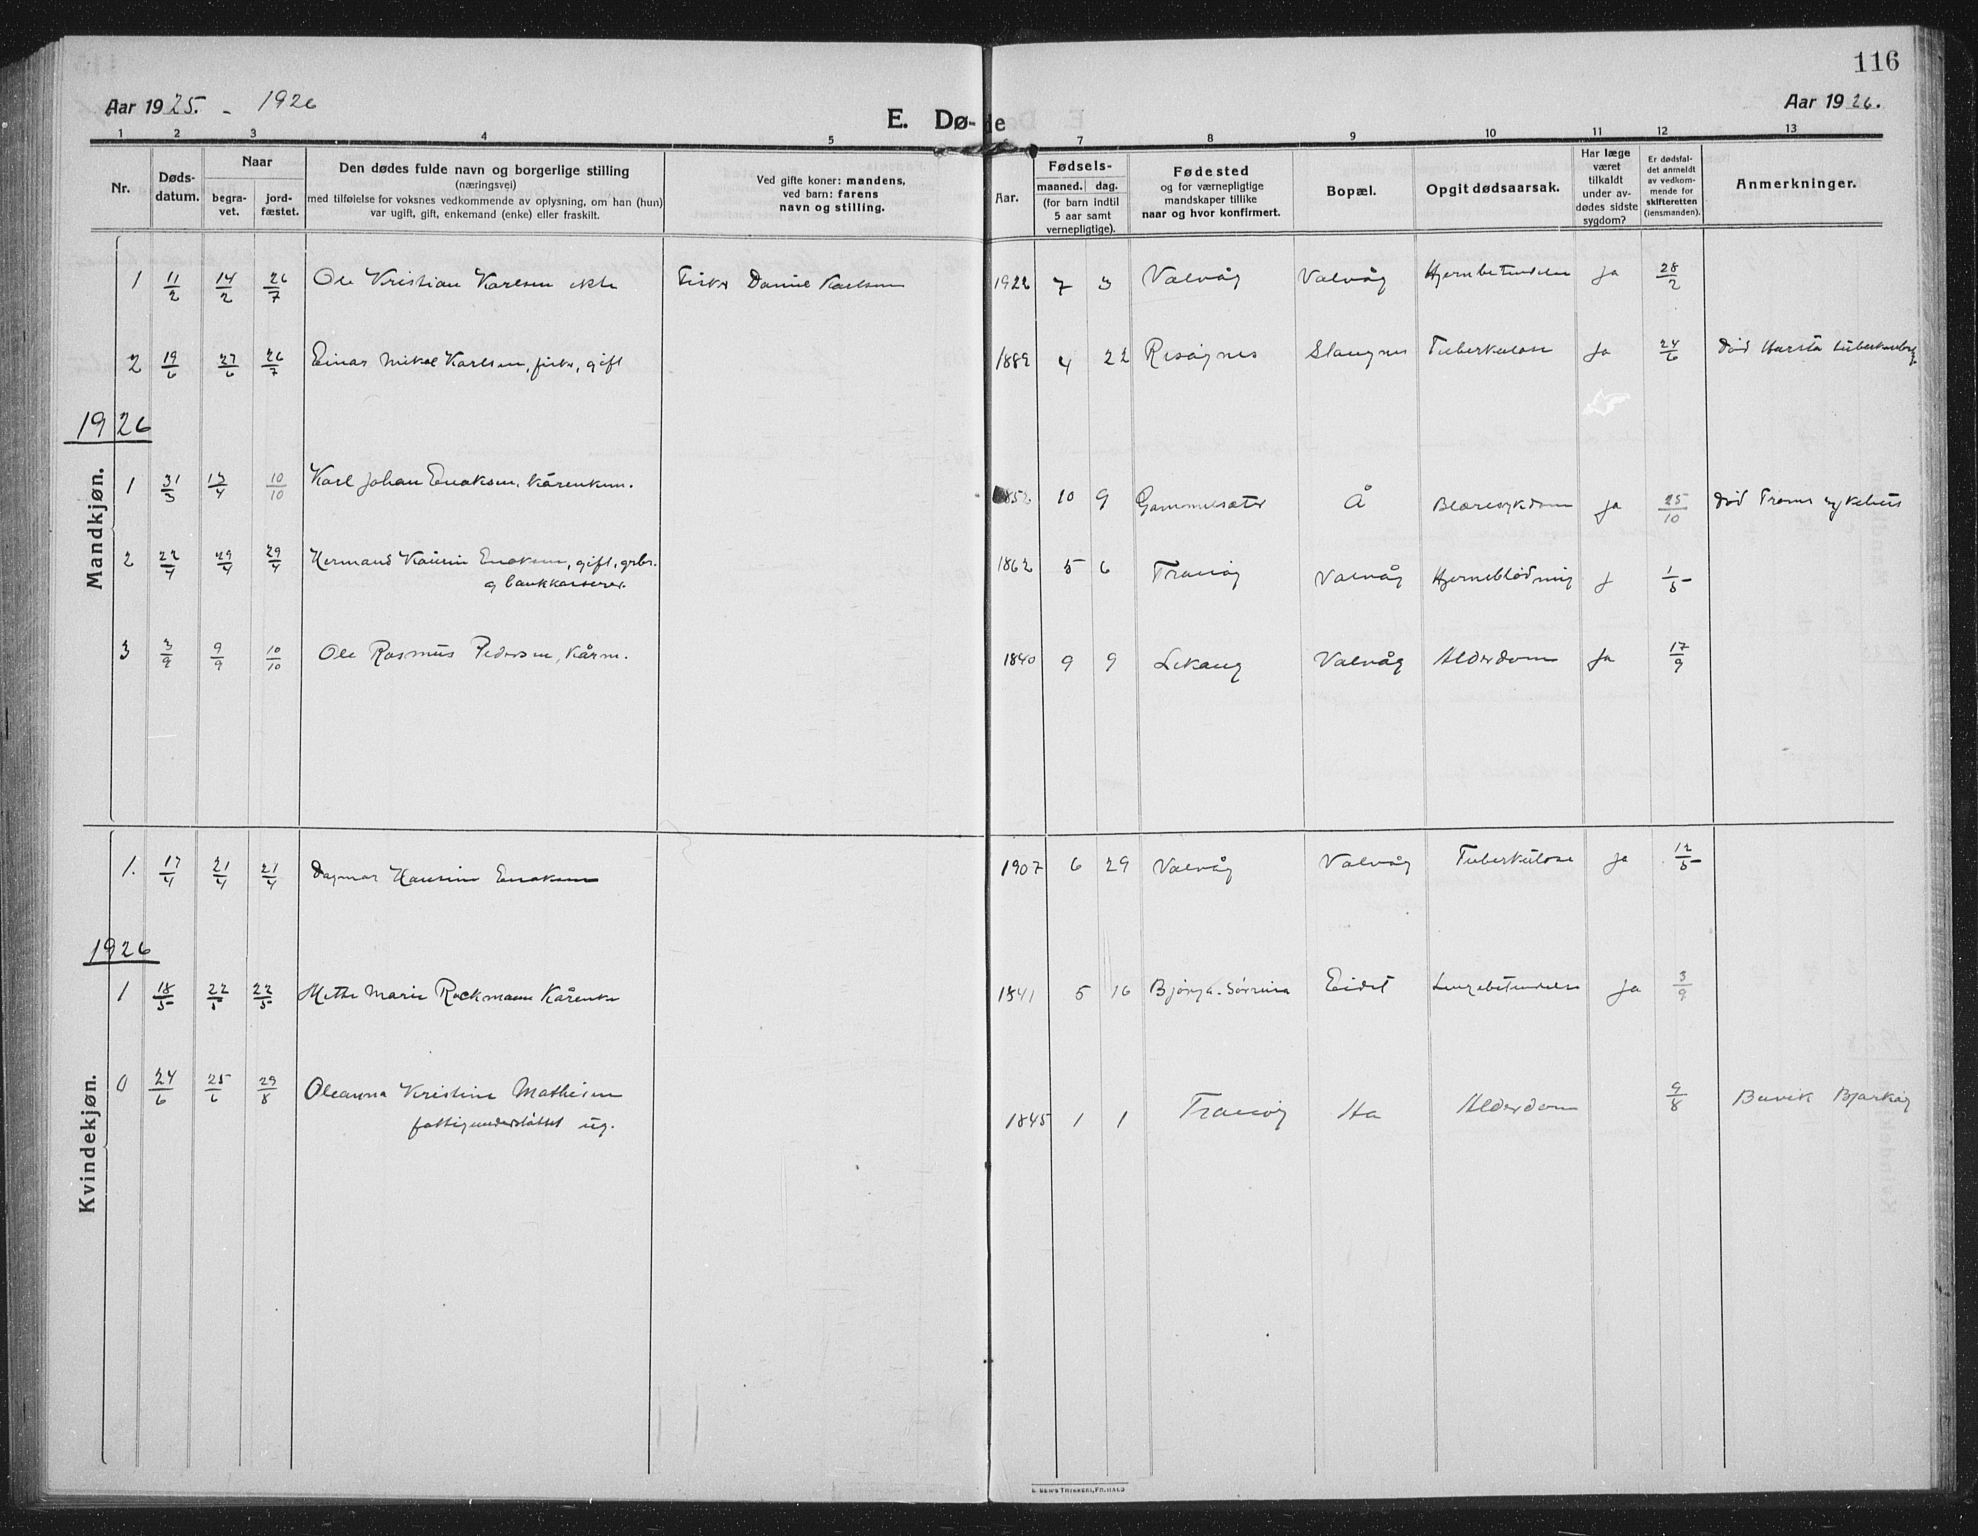 116
Aar 1925. - 1926
E. Dø-de
Aar 1926.
1 2 3 4 5 7 8 9 10 11 12 13
Nr.
Døds-
datum.
Naar
begra-
vet.
jord-
fæstet.
Den dødes fulde navn og borgerlige stilling
(næringsvei)
med tilføielse for voksnes vedkommende av oplysning, om han (hun)
var ugift, gift, enkemand (enke) eller fraskilt.
Ved gifte koner: mandens,
ved barn: farens
navn og stilling.
Fødsels-
Aar.
maaned. dag.
(for barn indtil
5 aar samt
vernepligtige).
Fødested
og for værnepligtige
mandskaper tillike
naar og hvor konfirmert.
Bopæl.
Opgit dødsaarsak.
Har læge
været
tilkaldt
under av-
dødes sidste
sygdom?
Er dødsfal-
det anmeldt
av vedkom-
mende for
skifteretten
(lensmanden).
Anmerkninger.
Mandkjøn.
1 11/2 14/2 26/7 Ole Kristian Karlsen ekte Fisker Daniel Karlsen 1922 7 3 Valvåg Valvåg Hjernbetendelse Ja 28/2
2 19/6 27/6 26/7 Einar Mikal Karlsen, fisker, gift 1882 4 22 Slaugnes Tuberkulose Ja 24/6 død Harsta
1926
1 31/3 13/4 10/10 Karl Johan Enoksen, kårenkem. 1852 10 9 Gammelsæter Å Blæresykdom Ja 25/10 død Troms sykehus
2 22/4 29/4 29/4 Hermand Kaurin Enoksen, gift, grbr.
og bankkasserer. 1862 5 6 Tranøy Valvåg Hjerneblødning J 1/5
3 3/9 9/9 10/10 Ole Rasmus Pedersen, kårm. 1840 9 9 Lekang Valvåg Alderdom Ja 17/9
Kvindekjøn.
1. 17/4 21/4 21/4 Dagmar Enoksen 1907 6 29 Valvåg Valvåg Tuberkulose Ja 12/5
1926
1 18/5 22/5 22/5 Mette Marie Rockmann Kårenke 1841 5 16 Eidet Lungebetendelse Ja 3/9
0 24/6 25/6 29/8 Oleanna Kristine Mathisen
fattigunderstøttet ug. 1845 1 1 Tranøy Alderdom 9/8 Bjarkøy